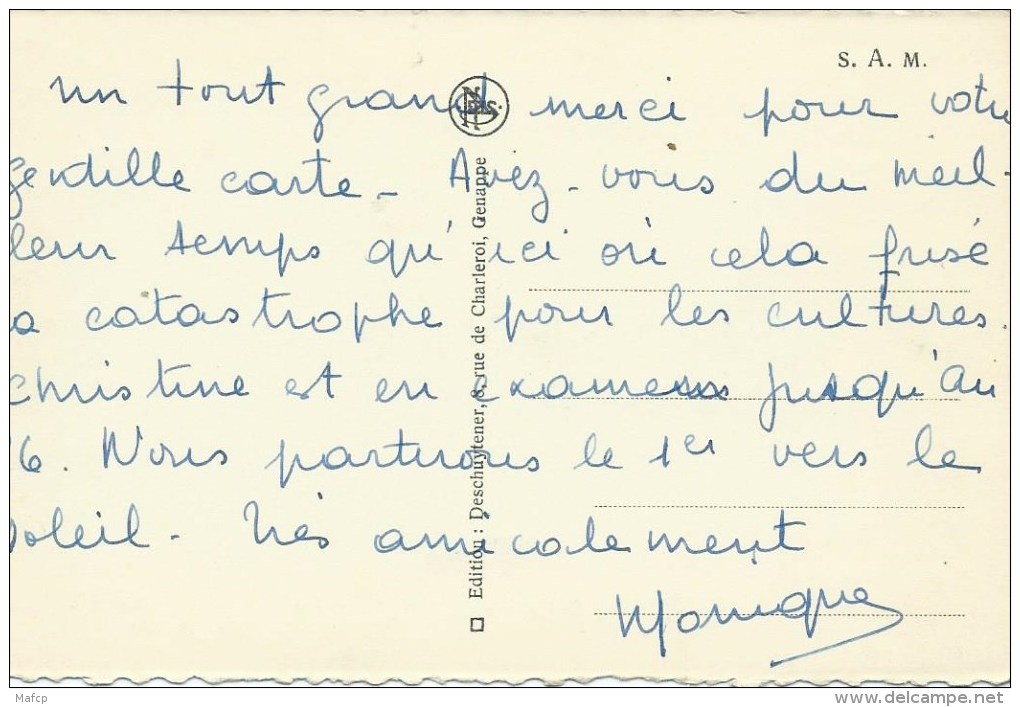 S. A. M.
un tout grand merci pour votre
gentille carte - Avez-vous du meil-
leur temps qu'ici où cela frise
la catastrophe pour les cultures.
Christine est en examens jusqu'au
26. Nous partirons le 1er vers le
soleil - Très amicalement
Monique
Edition : Deschuytener, 8, rue de Charleroi, Genappe
Mafcp
www.delcampe.net